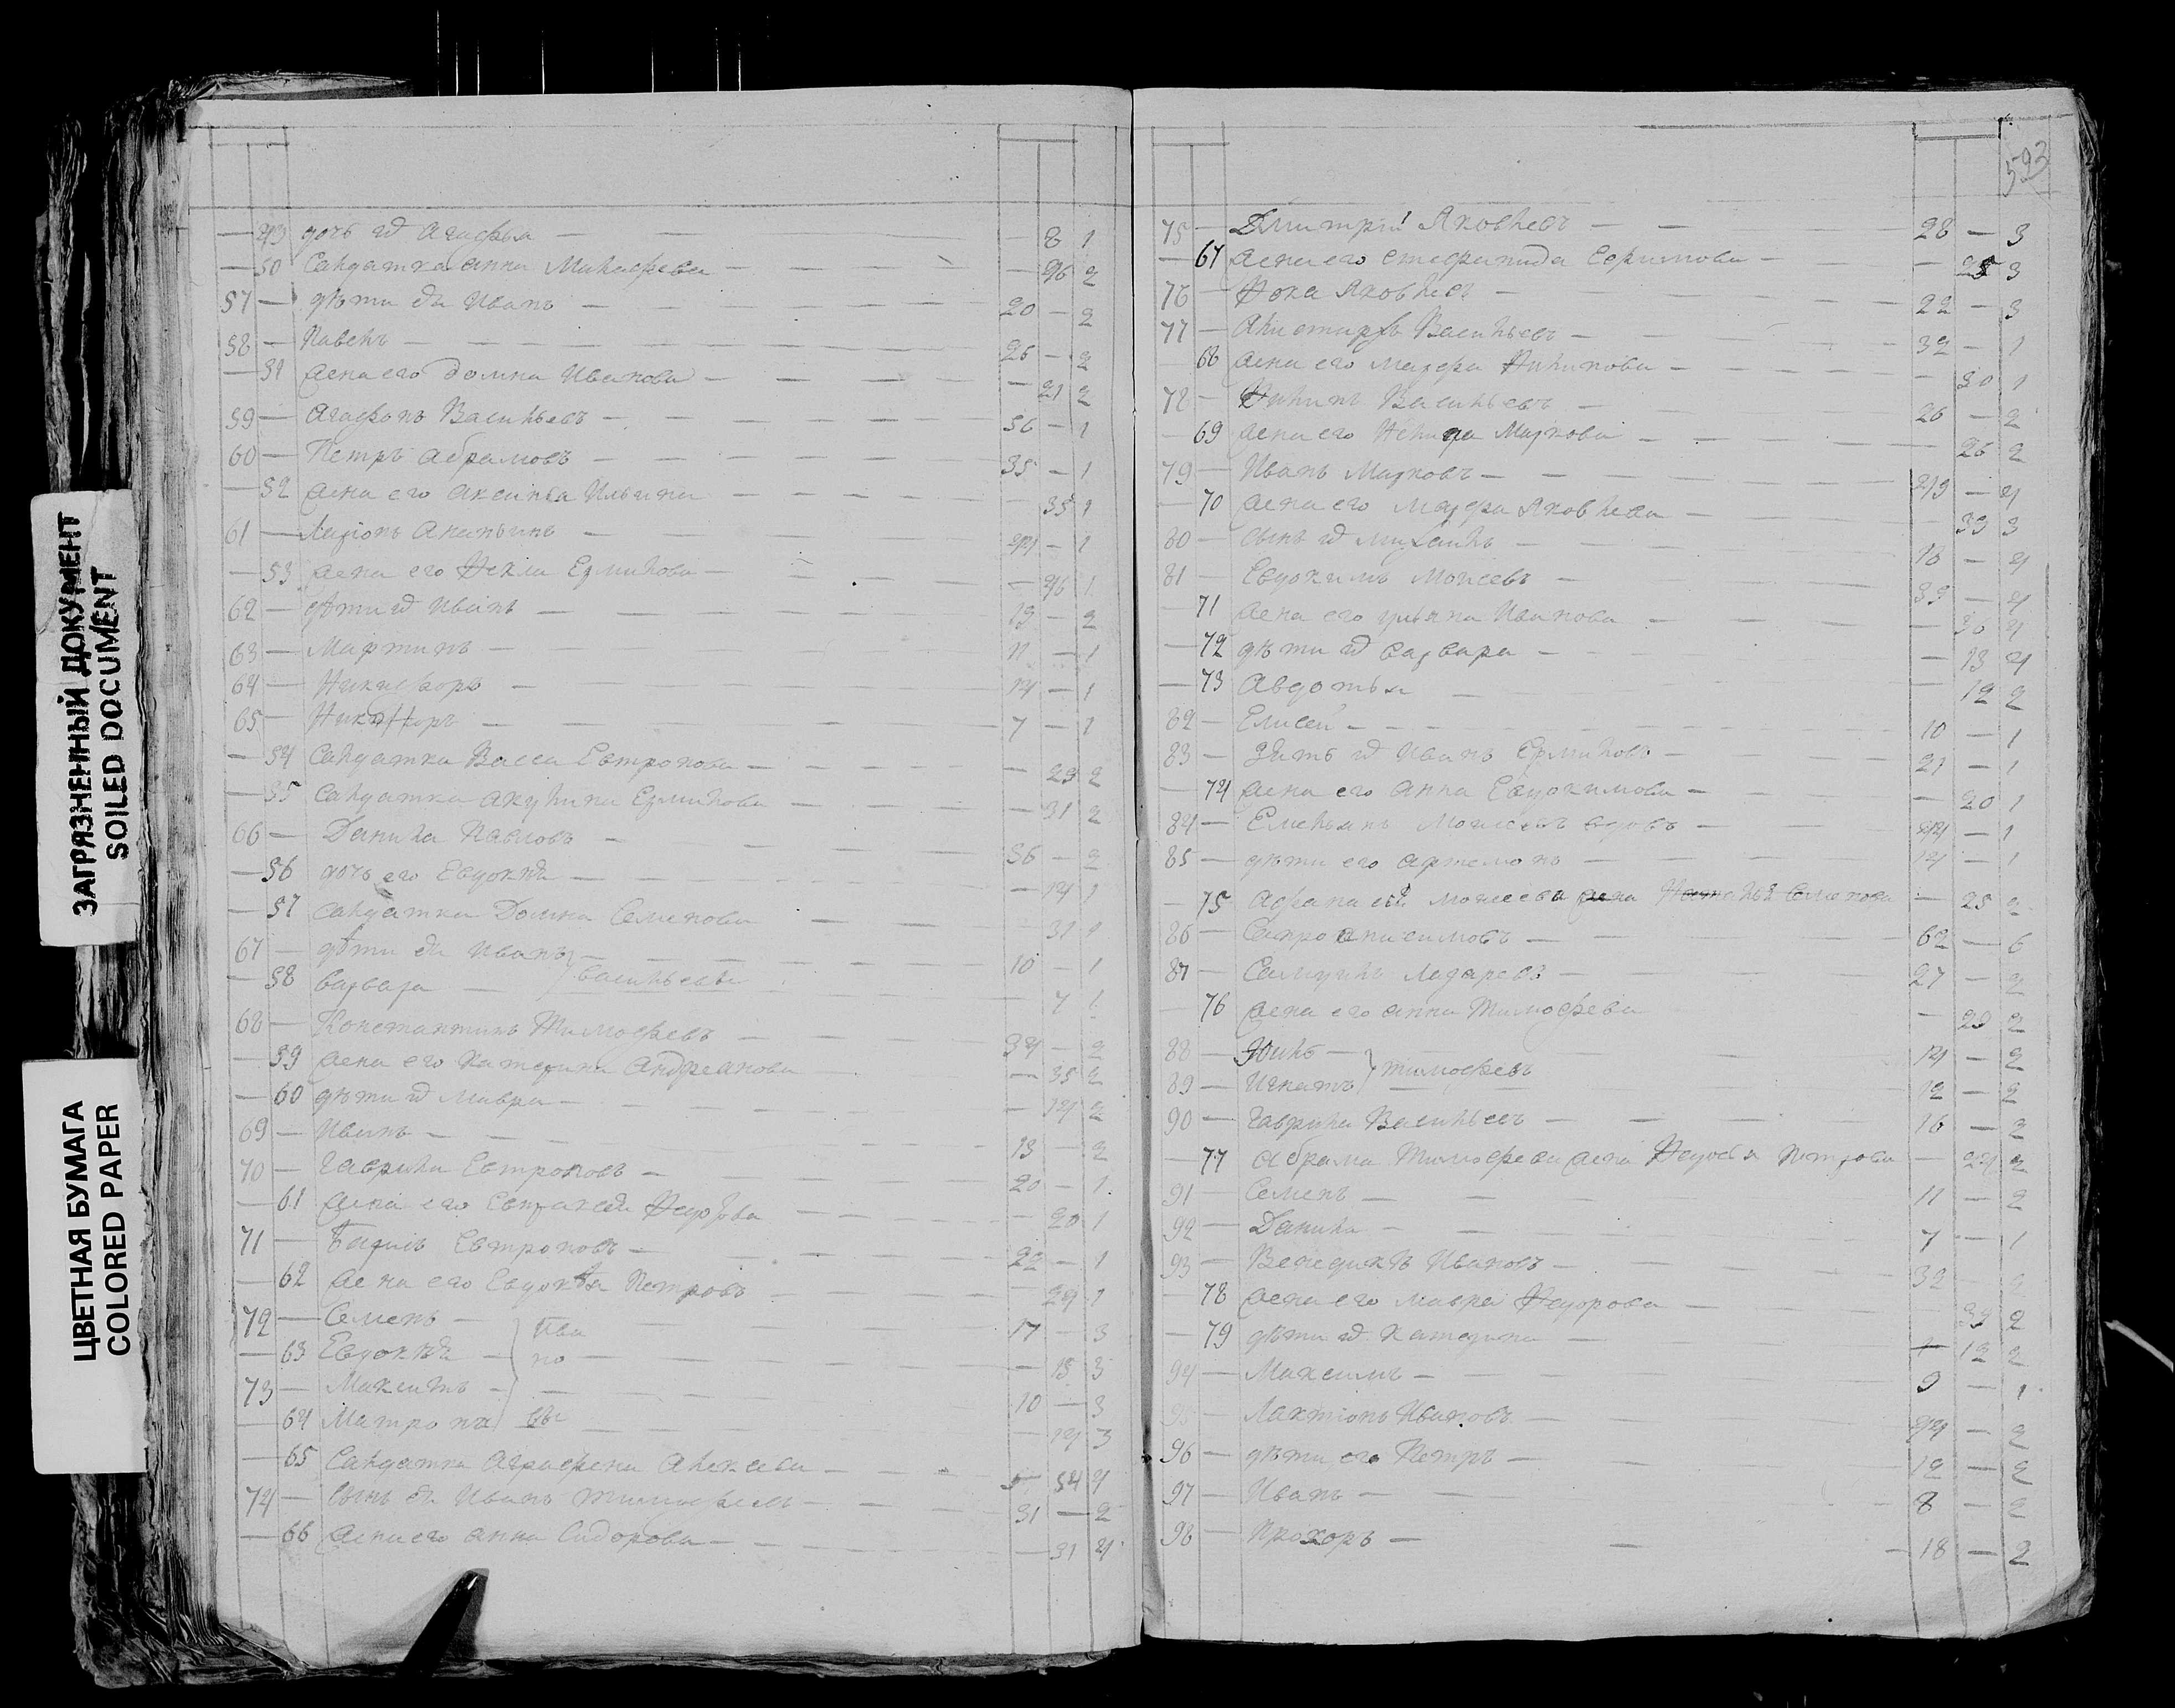 ЗАГРЯЗНЕННЫЙ ДОКУМЕНТ
SOILED DOCUMENT
ЦВЕТНАЯ БУМАГА
COLORED PAPER
— 49 дочь Агафья — 8 1
— 50 Салдатка анна — 46 2
57 — дѣти Иванъ — 20 — 2
58 — Павелъ — 26 — 2
— 51 жена его домна Иванова — 21 2
59 — Агафонъ Васильевъ — 56 — 1
60 — Петръ Абрамовъ — 35 — 1
— 52 жена его аксинья Ильина — 35 1
61 — Ларіонъ Ананьинъ — 44 — 1
— 53 жена его Фекла Ермилова — 46 1
62 — дѣти Иванъ — 19 — 2
63 — Мартинъ — 11 — 1
64 — Никифоръ — 14 — 1
65 — Никаноръ — 7 — 1
— 54 Салдатка Васса Евтропова — 2
— 55 Салдатка акулина Ермилова — 31 2
66 — Данила Павловъ — 56 — 2
— 56 дочь его Евдокѣя — 14 1
— 57 салдатка Домна Семенова — 31 1
67 — дѣти Иванъ — 10 — 1
— 58 варвара — васильевы — 7 1
68 — Константинъ Тимофеевъ — 34 — 2
— 59 жена его Катерина Андреанова — 35 2
— 60 дѣти Мавра — 14 2
69 — Иванъ — 13 — 2
70 — Гаврила Евтроповъ — 20 — 1
— 61 жена его Федорова — 20 1
71 — Евтроповъ — 22 — 1
— 62 жена его Евдокѣя Петрова — 24 1
72 — Семенъ — Ива — 17 — 3
— 63 Евдокѣя — но — 13 3
73 — Максимъ — 10 — 3
— 64 Матрона вы — 14 3
— 65 Салдатка Аграфена Алексеева — 54 4
74 — сынъ Иванъ Тимофеевъ — 31 — 2
— 66 жена его анна Сидорова — 31 4
593
75 — Дмитрій Яковлевъ — 28 — 3
— 67 жена его степанида Ефимова — 25 3
76 — Фока Яковлевъ — 22 — 3
77 — Васильевъ — 32 — 1
68 жена его Филипова — 30 1
78 — Филипъ Васильевъ — 26 — 2
— 69 жена его Маркова — 26 2
79 — Иванъ Марковъ — 49 — 4
— 70 жена его Яковлева — 39 3
80 — сынъ михаилъ — 18 — 4
81 — Евдокимъ Моисеевъ — 39 — 4
— 71 жена его ульяна Иванова — 36 4
— 72 дѣти варвара — 13 4
— 73 Авдотья — 12 2
82 — Елисей — 10 — 1
83 — Зять Иванъ Ермиловъ — 21 — 1
— 74 жена его анна Евдокимова — 20 1
84 — Емельянъ Моисеевъ вдовъ — 44 — 1
85 — дѣти его артемонъ — 14 — 1
— 75 моисеева жена Семенова — 25 2
86 — анисимовъ — 62 — 6
87 — Самуилъ Лазаревъ — 27 — 2
— 76 жена его анна Тимофеева — 29 2
88 — Юила — 14 — 2
89 — Игнатъ — тимофеевы — 12 — 2
90 — Гаврила Васильевъ — 16 — 2
— 77 Абрама Тимофеева жена Федосья Петрова — 24 2
91 — Семенъ — 11 — 2
92 — Данила — 7 — 1
93 — Венедиктъ Ивановъ — 32
— 78 жена его мавра Федорова — 39 2
— 79 дѣти Катерина — 12 2
94 — Максимъ — 9 — 1
95 — Лактіонъ Ивановъ — 44 — 2
96 — дѣти его Петръ — 12 — 2
97 — Иванъ — 8 — 2
98 — Прохоръ — 18 — 2